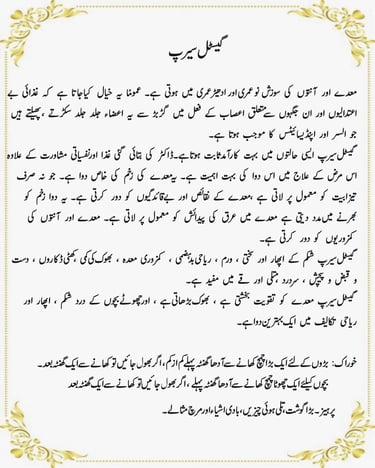 گیسٹل سیرپ
معدے اور آنتوں کی سوزش نو عمری اور ادھیڑ عمری میں ہوتی ہے۔ عموماً یہ خیال کیا جاتا ہے کہ غذائی بے
اعتدالیوں اور ان جگہوں سے متعلق اعصاب کے فعل میں گڑبڑ سے یہ اعضاء جلد جلد سکڑتے ،پھیلتے ہیں
جو السر اور اپنڈیسائیٹس کا موجب ہوتا ہے۔
گیسٹل سیرپ ایسی حالتوں میں بہت کارآمد ثابت ہوتا ہے۔ڈاکٹر کی بتائی گئی غذا اور نفسیاتی مشاورت کے علاوہ
اس مرض کے علاج میں اس دوا کی بہت اہمیت ہے۔ یہ معدے کی زخم کی خاص دوا ہے۔ جو نہ صرف
تیزابیت کو معمول پر لاتی ہے ،معدے کے نقائص اور بے قاعدگیوں کو دور کرتی ہے۔ یہ دوا زخم کو
بھرنے میں مدد دیتی ہے معدے میں عرق کی پیدائش کو معمول پر لاتی ہے۔ معدے اور آنتوں کی
کمزوریوں کو دور کرتی ہے۔
گیسٹل سیرپ شکم کے اپھار اور سختی ، ورم ، ریاحی بدہضمی ، کمزوری معدہ ، بھوک کی کمی ،کھٹی ڈکاروں ، دست
و قبض و پیچش ، سردرد ،متلی اور قے میں مفید ہے۔
گیسٹل سیرپ معدے کو تقویت بخشتی ہے ، بھوک بڑھاتی ہے ، اور چھوٹے بچوں کے درد شکم ، اپھار اور
ریاحی تکالیف میں ایک بہترین دوا ہے۔
خوراک: بڑوں کے لئے ایک بڑا چمچ کھانے سے آدھا گھنٹہ پہلے کم از کم، اگر بھول جائیں تو کھانے سے ایک گھنٹہ بعد۔
بچوں کیلئے ایک چھوٹا چمچ کھانے سے آدھا گھنٹہ پہلے ،اگر بھول جائیں تو کھانے سے ایک گھنٹہ بعد
پرہیز۔ بڑا گوشت، تلی ہوئی چیزیں، بادی اشیاء اور مرچ مثالے۔